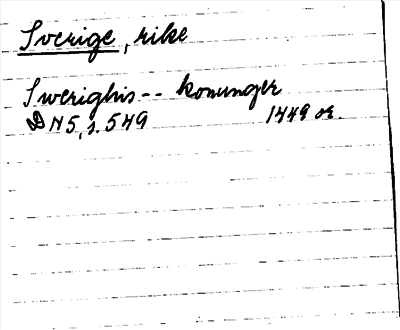 Sverige, rike
Swerighis -- konunger
DN 5, s. 549 1449 or.